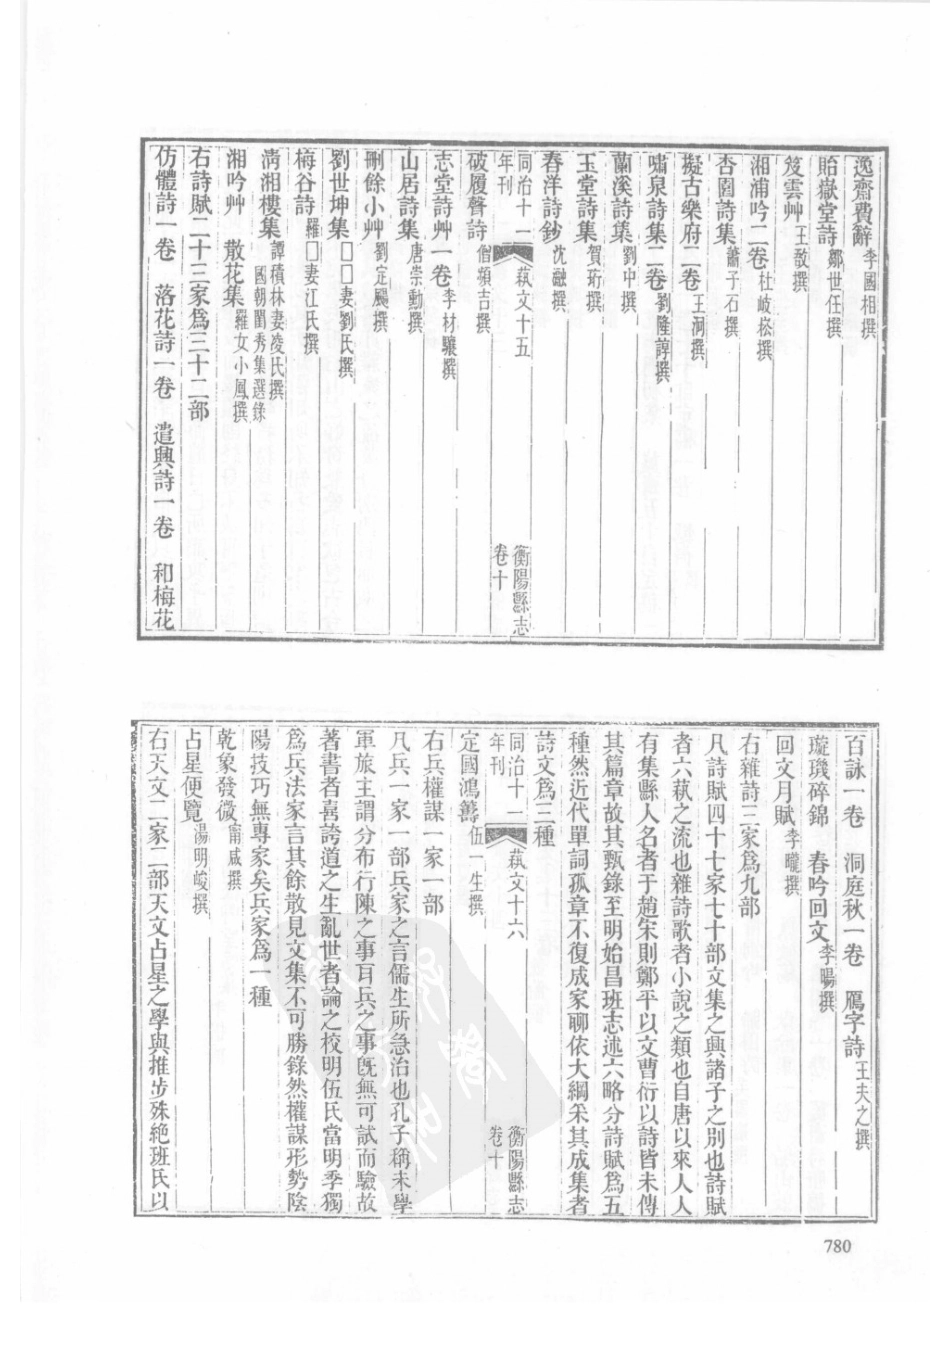 逸齋費辭李國相撰
貽嶽堂詩鄒世任撰
笈雲艸王敔撰
湘浦吟二卷杜岐崧撰
杏園詩集蕭子石撰
擬古樂府二卷王泂撰
嘯泉詩集二卷劉隆諄撰
蘭溪詩集劉中撰
玉堂詩集賀珩撰
春洋詩鈔沈融撰
同治十一年刊 萟文十五 衡陽縣志卷十
破履聲詩僧頴吉撰
志堂詩艸一卷李材驤撰
山居詩集唐崇勳撰
刪餘小艸劉定颺撰
劉世坤集囗囗妻劉氏撰
梅谷詩羅囗妻江氏撰
清湘樓集譚積林妻凌氏撰國朝閨秀集選錄
湘吟艸 散花集羅女小鳳撰
右詩賦二十三家爲三十二部
仿體詩一卷 落花詩一卷 遣興詩一卷 和梅花
百詠一卷 洞庭秋一卷 鴈字詩王夫之撰
璇璣碎錦 春吟回文李暘撰
回文月賦李曨撰
右雜詩三家爲九部
凡詩賦四十七家七十部文集之興諸子之別也詩賦
者六萟之流也雜詩歌者小說之類也自唐以來人人
有集縣人名者于趙宋則鄭平以文曹衍以詩皆未傳
其篇章故其甄錄至明始昌班志述六略分詩賦爲五
種然近代單詞孤章不復成家聊依大綱采其成集者
詩文爲三種
同治十一年刊 萟文十六 衡陽縣志卷十
定國鴻籌伍一生撰
右兵權謀一家一部
凡兵一家一部兵家之言儒生所急治也孔子稱未學
軍旅主謂分布行陳之事耳兵之事旣無可試而驗故
著書者喜誇道之生亂世者論之校明伍氏當明季獨
爲兵法家言其餘散見文集不可勝錄然權謀形勢陰
陽技巧無專家矣兵家爲一種
乾象發微甯咸撰
占星便覽湯明峻撰
右天文二家二部天文占星之學與推步殊絶班氏以
780